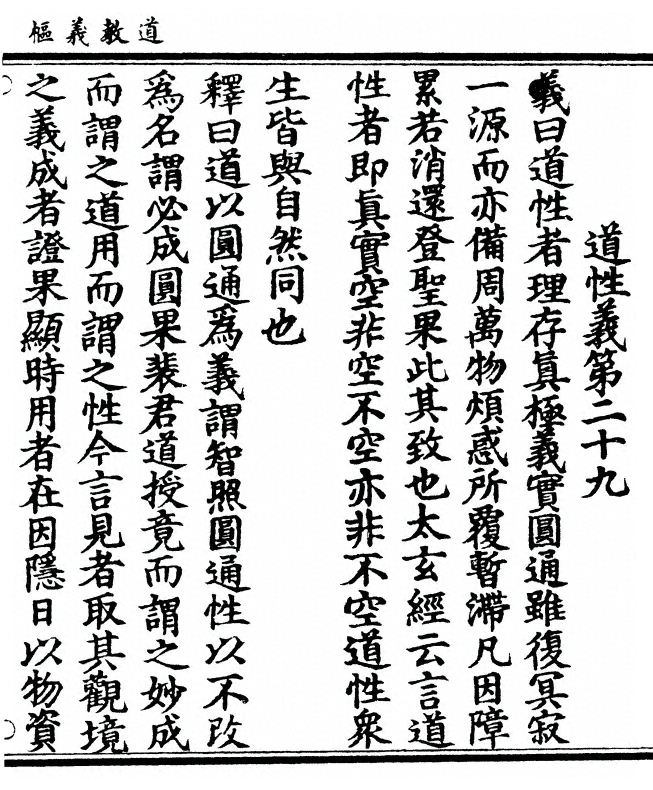 道教義樞
道性義第二十九
義曰道性者理存眞極義實圓通雖復冥寂
一源而亦備周萬物煩惑所覆暫滯凡因障
累若消還登聖果此其致也太玄經云言道
性者即眞實空非空不空亦非不空道性衆
生皆與自然同也
釋曰道以圓通爲義謂智照圓通性以不改
爲名謂必成圓果裴君道授竟而謂之妙成
而謂之道用而謂之性今言見者取其觀境
之義成者證果顯時用者在因隱日以物資